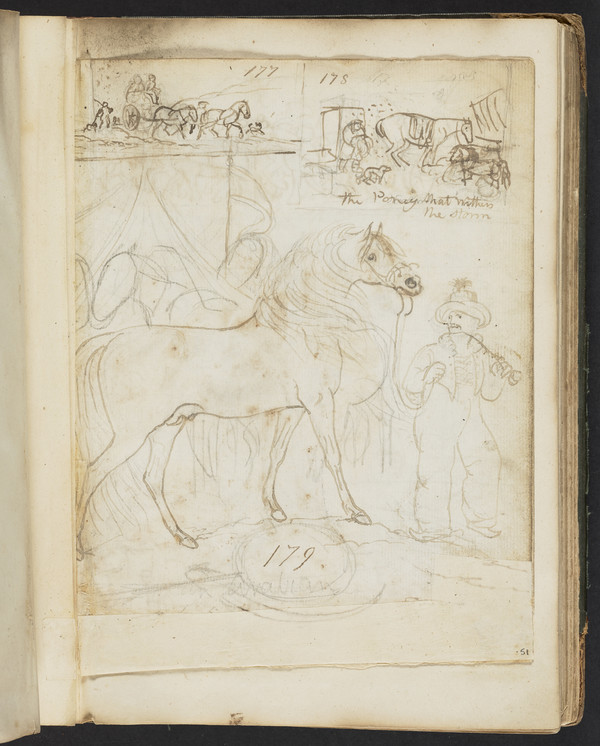 177
178
the Poney that
the storm
179
Arabian
51